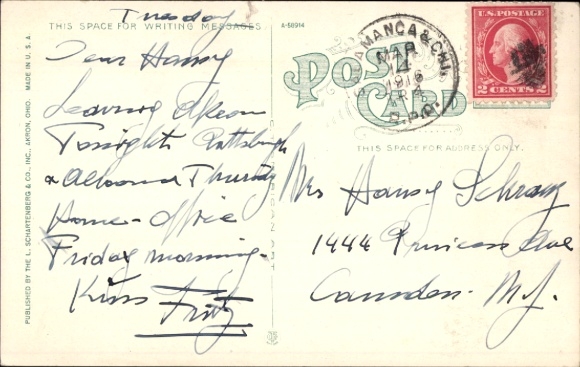 Tuesday
THIS SPACE FOR WRITING MESSAGES
A-58914
Dear Hansy
Leaving Akron
Tonight Pittsburgh
& Altoona Thursday
Home - Office
Friday morning -
Kiss Fritz
PUBLISHED BY THE L. SCHARTENBERG & CO., INC., AKRON, OHIO. MADE IN U.S.A.
POST
CARD
MANCA & CHI.
MAR
14
1918
R.P.O.
U.S. POSTAGE
2 CENTS 2
THIS SPACE FOR ADDRESS ONLY.
Mrs Hansy
1444 Princess Ave
Camden - N.J.